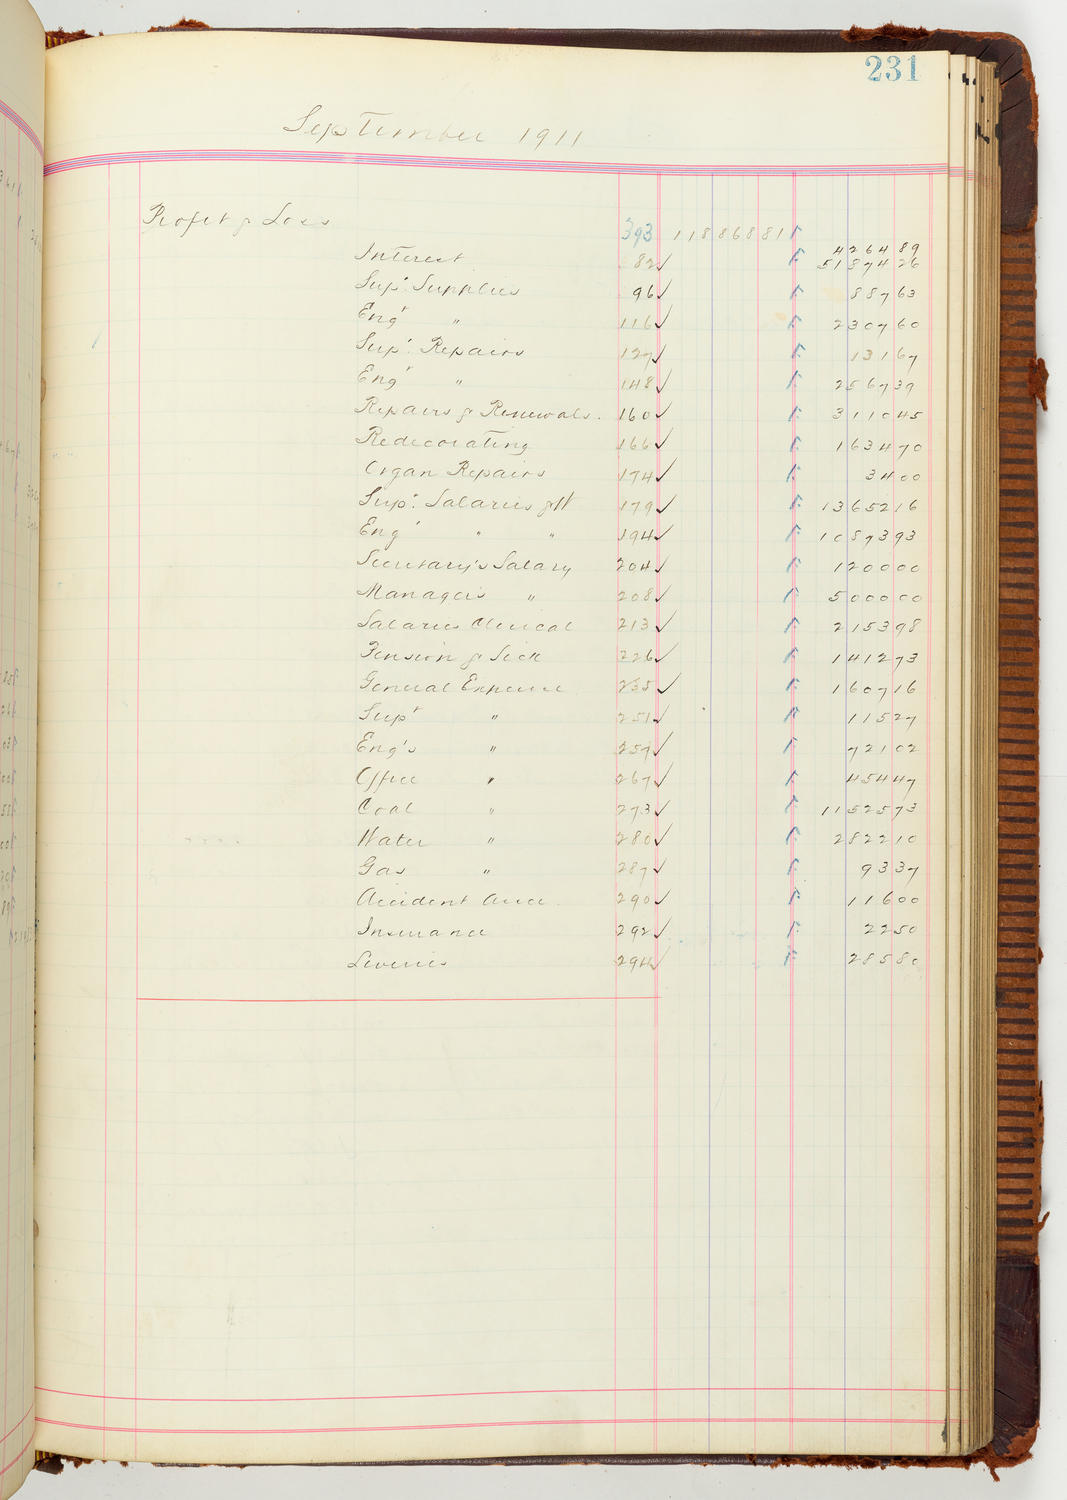 231
September 1911
Profit & Loss 393 11886881
426489
Interest 82 ✓ 5187426
Sup't Supplies 96 ✓ 88763
Eng' " 116 ✓ 230760
Sup't Repairs 127 ✓ 13167
Eng' " 148 ✓ 256739
Repairs & Renewals. 160 ✓ 311045
Redecorating 166 ✓ 163470
Organ Repairs 174 ✓ 3400
Sup't Salaries & W 179 ✓ 1365216
Eng' " " 194 ✓ 1087393
Secretary's Salary 204 ✓ 120000
Managers " 208 ✓ 500000
Salaries Clerical 213 ✓ 215398
Pension & Sick 226 ✓ 141273
General Expense 235 ✓ 160716
Sup't " 251 ✓ 11527
Eng's " 259 ✓ 72102
Office " 267 ✓ 45447
Coal " 273 ✓ 1152573
Water " 280 ✓ 282210
Gas " 287 ✓ 9337
Accident Assce. 290 ✓ 11600
Insurance 292 ✓ 2250
294 ✓ 28580